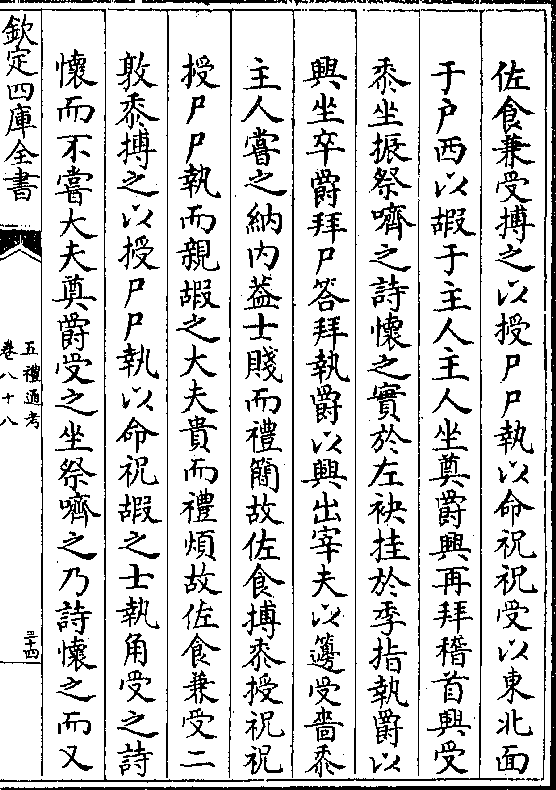 佐食兼受摶之以授尸尸執以命祝祝受以東北面
于户西以嘏于主人主人坐奠爵興再拜稽首興受
黍坐振祭嚌之詩懷之實於左袂挂於季指執爵以
興坐卒爵拜尸答拜執爵以興出宰夫以籩受嗇黍
主人嘗之納内蓋士賤而禮簡故佐食摶黍授祝祝
授尸尸執而親嘏之大夫貴而禮煩故佐食兼受二
敦黍摶之以授尸尸執以命祝嘏之士執角受之詩
懷而不嘗大夫奠爵受之坐祭嚌之乃詩懷之而又
欽定四庫全書
五禮通考
卷八十八
三十四